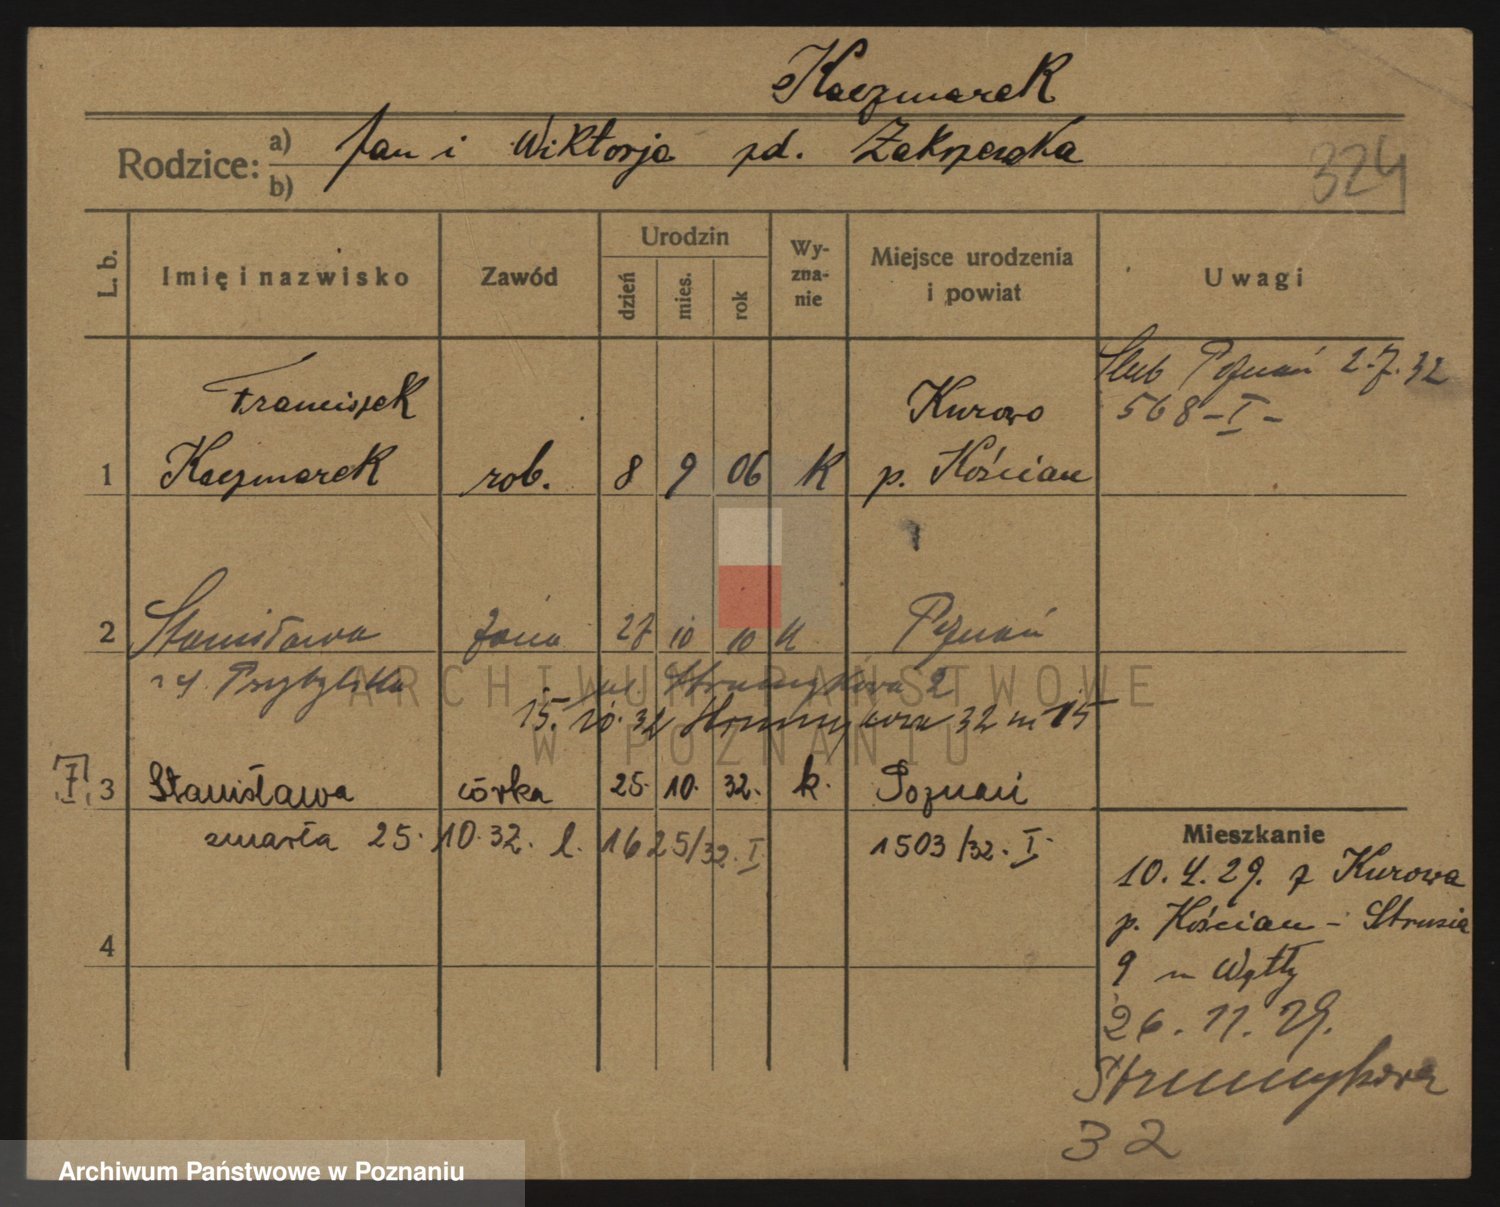 Kaczmarek
Rodzice: a) Jan i Wiktorja zd. Zakrzewska
b)
324
L. b. Imię i nazwisko Zawód Urodzin dzień mies. rok Wy-zna-nie Miejsce urodzenia i powiat Uwagi
Ślub Poznań 2.7.32
568-I-
Franciszek Kurowo
1 Kaczmarek rob. 8 9 06 K p. Kościan
2 Stanisława żona 27 10 10 K Poznań
Przybylska ul. Strumykowa 2
15.10.32 Strumykowa 32 m 15
I 3 Stanisława córka 25. 10. 32. k. Poznań
zmarła 25.10.32. l. 1625/32. I 1503/32. I.
Mieszkanie
10.4.29. z Kurowa
p. Kościan - Strusia
9 m
4
26.11.29.
Strumykowa
32
ARCHIWUM PAŃSTWOWE
W POZNANIU
Archiwum Państwowe w Poznaniu